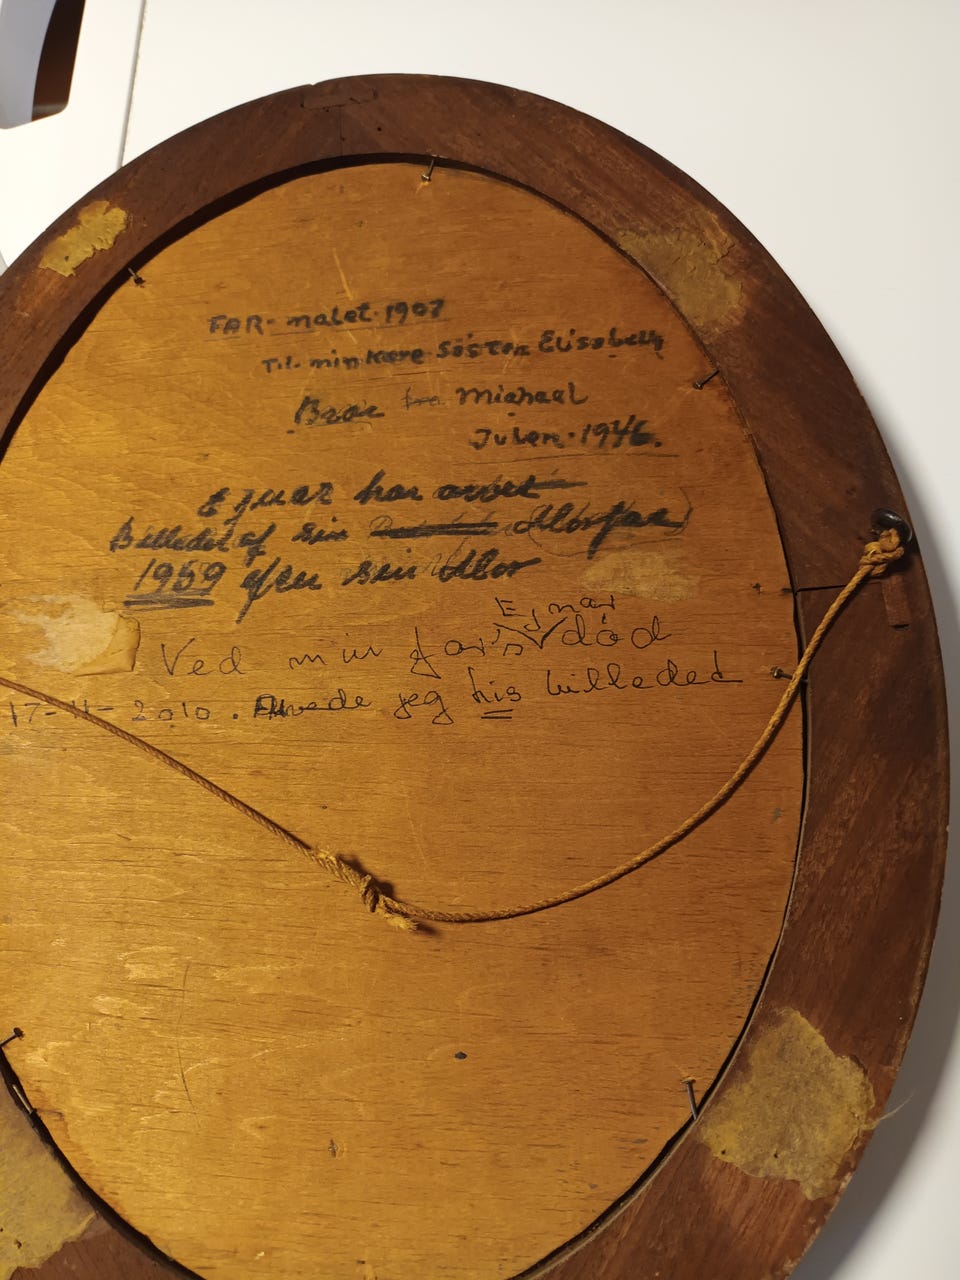 FAR- malet. 1907
Til. min kære Søster Elisabeth
Bror fra Michael
Julen. 1946.
Ejnar har arvet
Billedet af sin Morfar
1969 efter sin Mor
Ejnar
Ved min far's død
17-11-2010. Arvede jeg his billedet